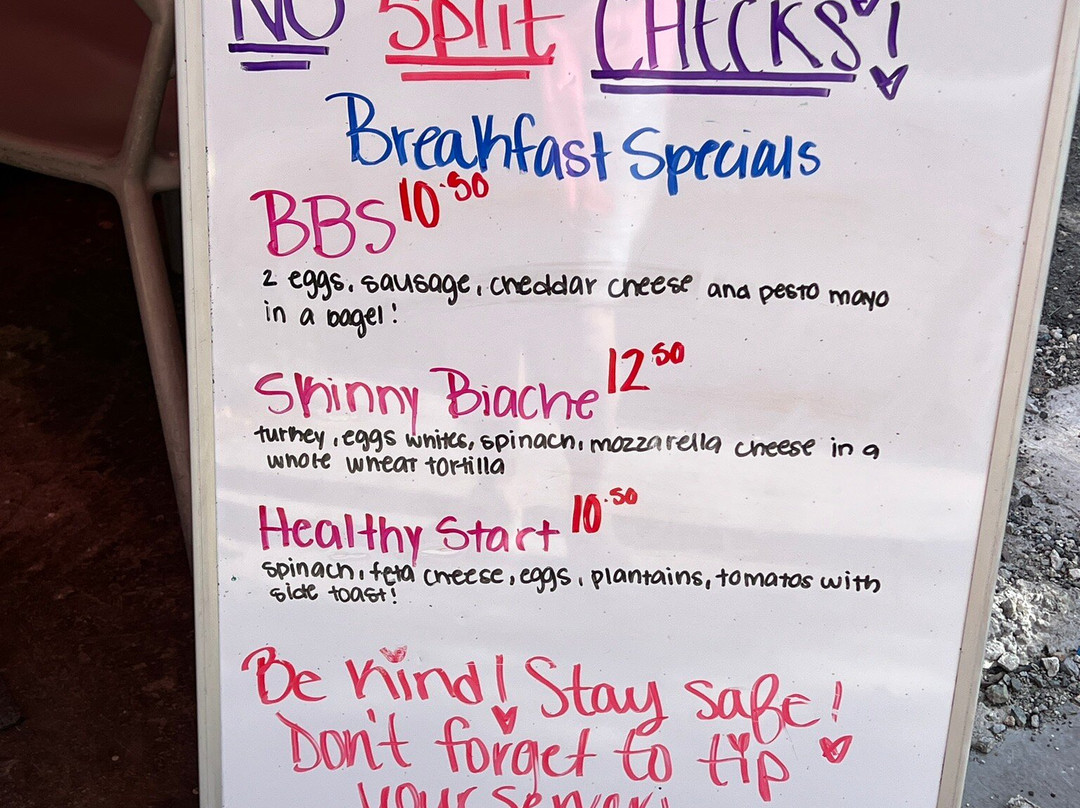 NO Split CHECKS!
Breakfast Specials
BBS 10.50
2 eggs, sausage, cheddar cheese and pesto mayo
in a bagel!
Skinny Biache 12 50
turkey, eggs whites, spinach, mozzarella cheese in a
whole wheat tortilla
Healthy Start 10.50
spinach, feta cheese, eggs, plantains, tomatos with
side toast!
Be kind! Stay safe!
Don't forget to tip
your server!